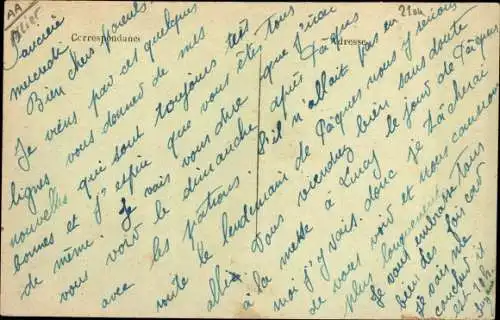 AA
Allier
2104
Correspondance
Adresse
Saucière
mercredi
Bien chers parents.
Je viens par ces quelques
lignes vous donner de mes
nouvelles qui sont toujours très
bonnes et j'espère que vous êtes tous
de même. Je vais vous dire que j'irai
vous voir le dimanche après Pâques
avec les
route le lendemain de Pâques nous y serions
allés. Vous viendrez bien sans doute
à la messe à Lurcy le jour de Pâques
moi j'y vais. donc je tâcherai
de vous voir et nous causerons
plus longuement
Je vous embrasse tous
bien des fois car
je vais me
coucher il
est 10h